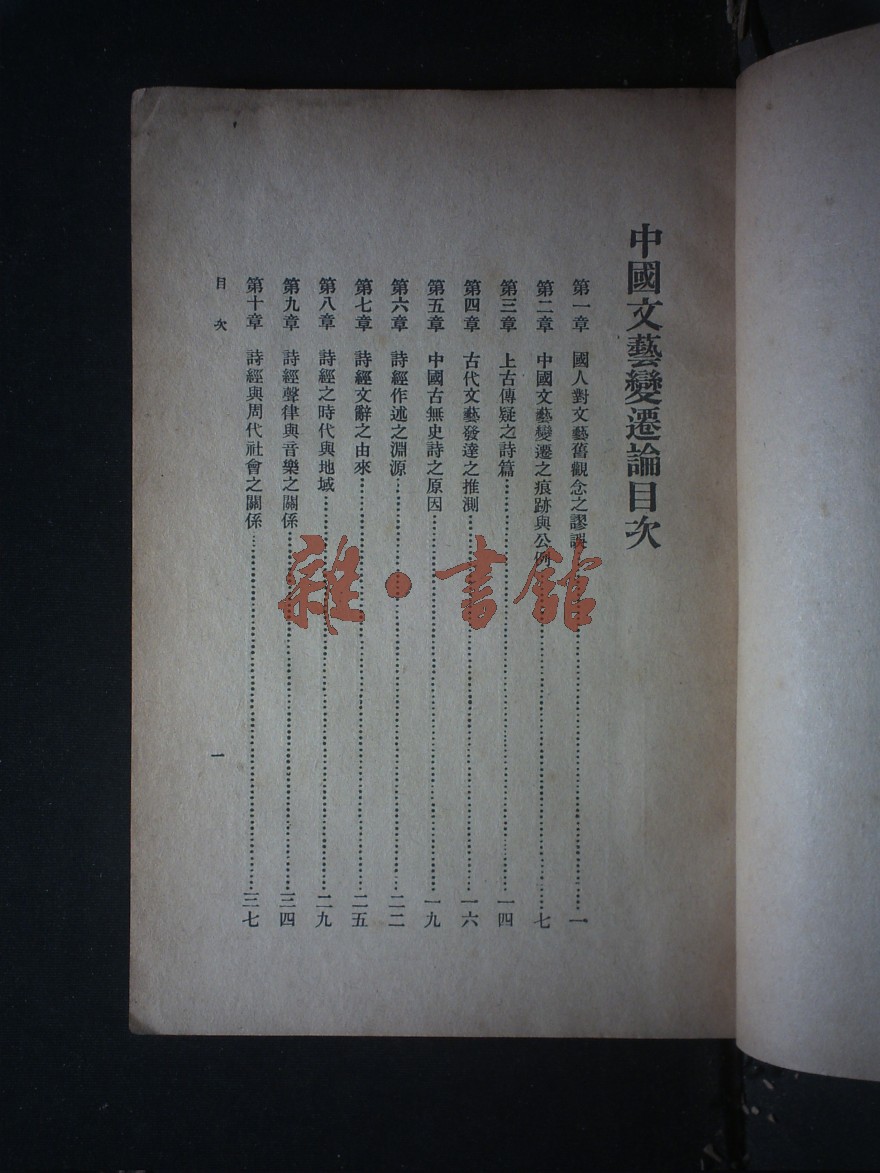 中國文藝變遷論目次
第一章 國人對文藝舊觀念之謬誤……一
第二章 中國文藝變遷之痕跡與公例……七
第三章 上古傳疑之詩篇……一四
第四章 古代文藝發達之推測……一六
第五章 中國古無史詩之原因……一九
第六章 詩經作述之淵源……二二
第七章 詩經文辭之由來……二五
第八章 詩經之時代與地域……二九
第九章 詩經聲律與音樂之關係……三四
第十章 詩經與周代社會之關係……三七
目次
一
雜·書館